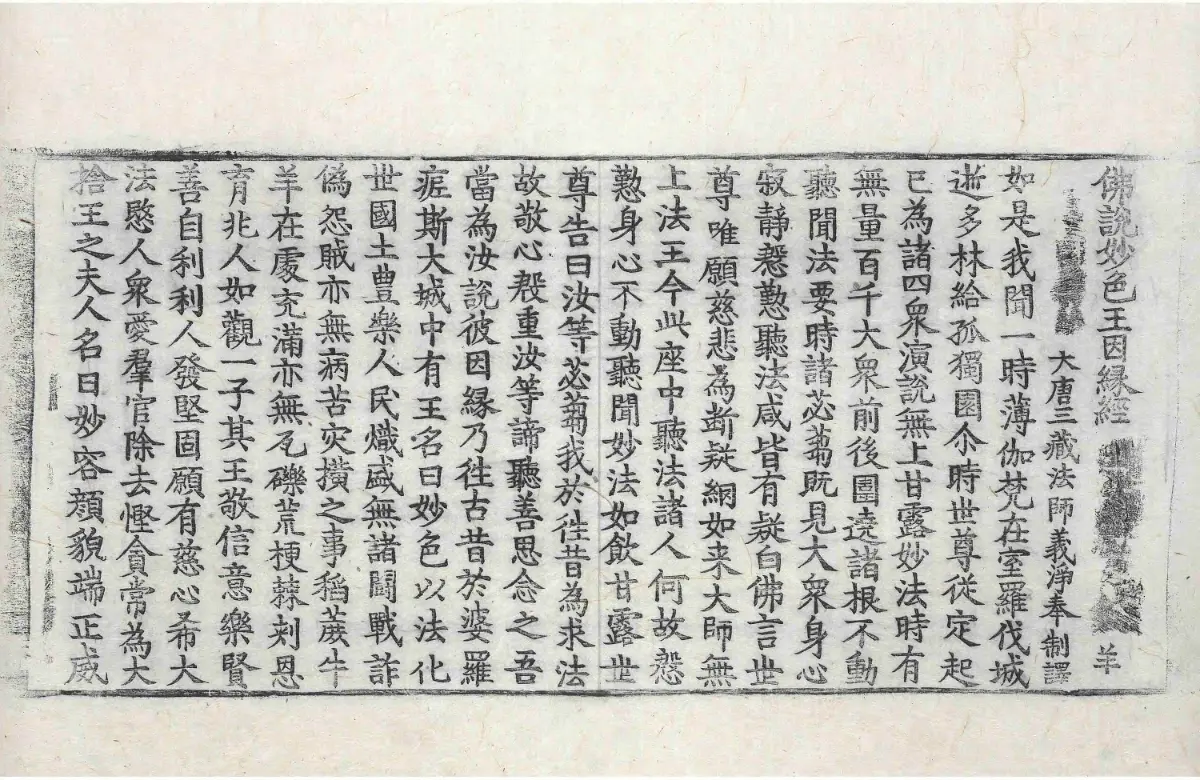 佛說妙色王因縁經 羊
大唐三藏法師義淨奉 制譯
如是我聞一時薄伽梵在室羅伐城
逝多林給孤獨園尒時世尊從定起
已為諸四衆演說無上甘露妙法時有
無量百千大衆前後圍遶諸根不動
聽聞法要時諸苾蒭旣見大衆身心
寂靜慇懃聽法咸皆有疑白佛言世
尊唯願慈悲為斷疑網如来大師無
上法王今此座中聽法諸人何故慇
懃身心不動聽聞妙法如飲甘露世
尊告曰汝等苾蒭我於徃昔為求法
故敬心殷重汝等諦聽善思念之吾
當為汝說彼因縁乃徃古昔於婆羅
痆斯大城中有王名曰妙色以法化
世國土豊樂人民熾盛無諸鬪戰詐
偽怨賊亦無病苦灾橫之事稻蔗牛
羊在處充滿亦無瓦礫荒梗棘刺恩
育兆人如觀一子其王敬信意樂賢
善自利利人發堅固願有慈心希大
法愍人衆愛羣官除去慳貪常為大
捨王之夫人名曰妙容顏貌端正威